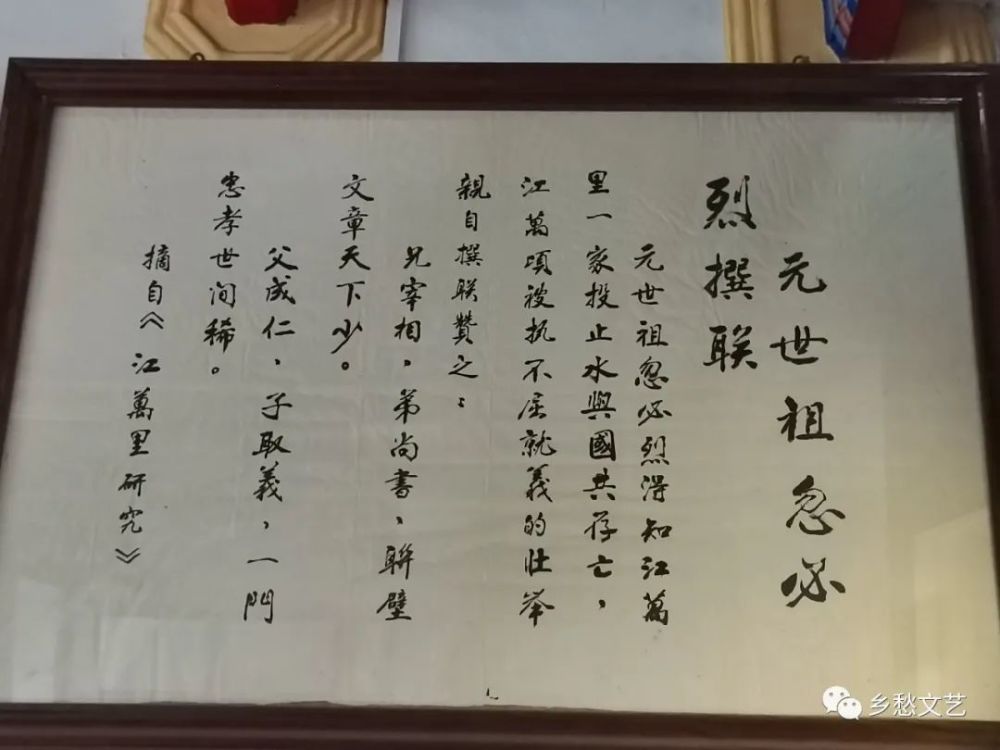 元世祖忽必
烈撰联
元世祖忽必烈得知江萬
里一家投止水與國共存亡，
江萬頃被执不屈就義的壮举
親自撰联贊之：
兄宰相，弟尚書、聨壁
文章天下少。
父成仁、子取義，一門
忠孝世间稀。
摘自《江萬里研究》
乡愁文艺